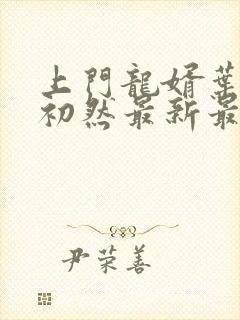 上門龍婿葉
初然最新最
尹荣善